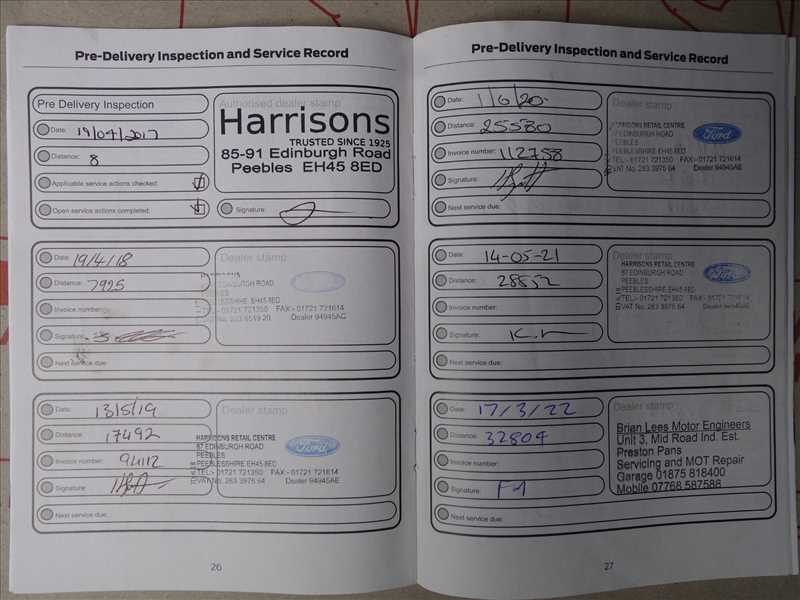 Pre-Delivery Inspection and Service Record
Pre Delivery Inspection
Date: 19/04/2017
Distance: 8
Applicable service actions checked:
Open service actions completed:
Authorised dealer stamp
Harrisons
TRUSTED SINCE 1925
85-91 Edinburgh Road
Peebles EH45 8ED
Signature:
Date: 19/4/18
Distance: 7925
Invoice number:
Signature:
Next service due:
Dealer stamp
EDINBURGH ROAD
PEEBLES
EH45 8ED
TEL:- 01721 721350 FAX:- 01721 721614
Dealer 94945AC
Date: 13/5/19
Distance: 17492
Invoice number: 94112
Signature:
Next service due:
Dealer stamp
HARRISONS RETAIL CENTRE
87 EDINBURGH ROAD
PEEBLES
PEEBLESSHIRE EH45 8ED
TEL:- 01721 721350 FAX:- 01721 721614
VAT No. 263 3975 64 Dealer 94945AE
Ford
26
Pre-Delivery Inspection and Service Record
Date: 1/6/20
Distance: 25580
Invoice number: 112758
Signature:
Next service due:
Dealer stamp
HARRISONS RETAIL CENTRE
EDINBURGH ROAD
PEEBLES
PEEBLESSHIRE EH45 8ED
TEL:- 01721 721350 FAX:- 01721 721614
VAT No. 263 3975 64 Dealer 94945AE
Ford
Date: 14-05-21
Distance: 28852
Invoice number:
Signature:
Next service due:
Dealer stamp
HARRISONS RETAIL CENTRE
87 EDINBURGH ROAD
PEEBLES
PEEBLESSHIRE EH45 8ED
TEL:- 01721 721350 FAX:- 01721 721614
VAT No. 263 3975 64 Dealer 94945AE
Ford
Date: 17/3/22
Distance: 32804
Invoice number:
Signature:
Next service due:
Dealer stamp
Brian Lees Motor Engineers
Unit 3, Mid Road Ind. Est.
Preston Pans
Servicing and MOT Repair
Garage 01875 818400
Mobile 07768 587588
27